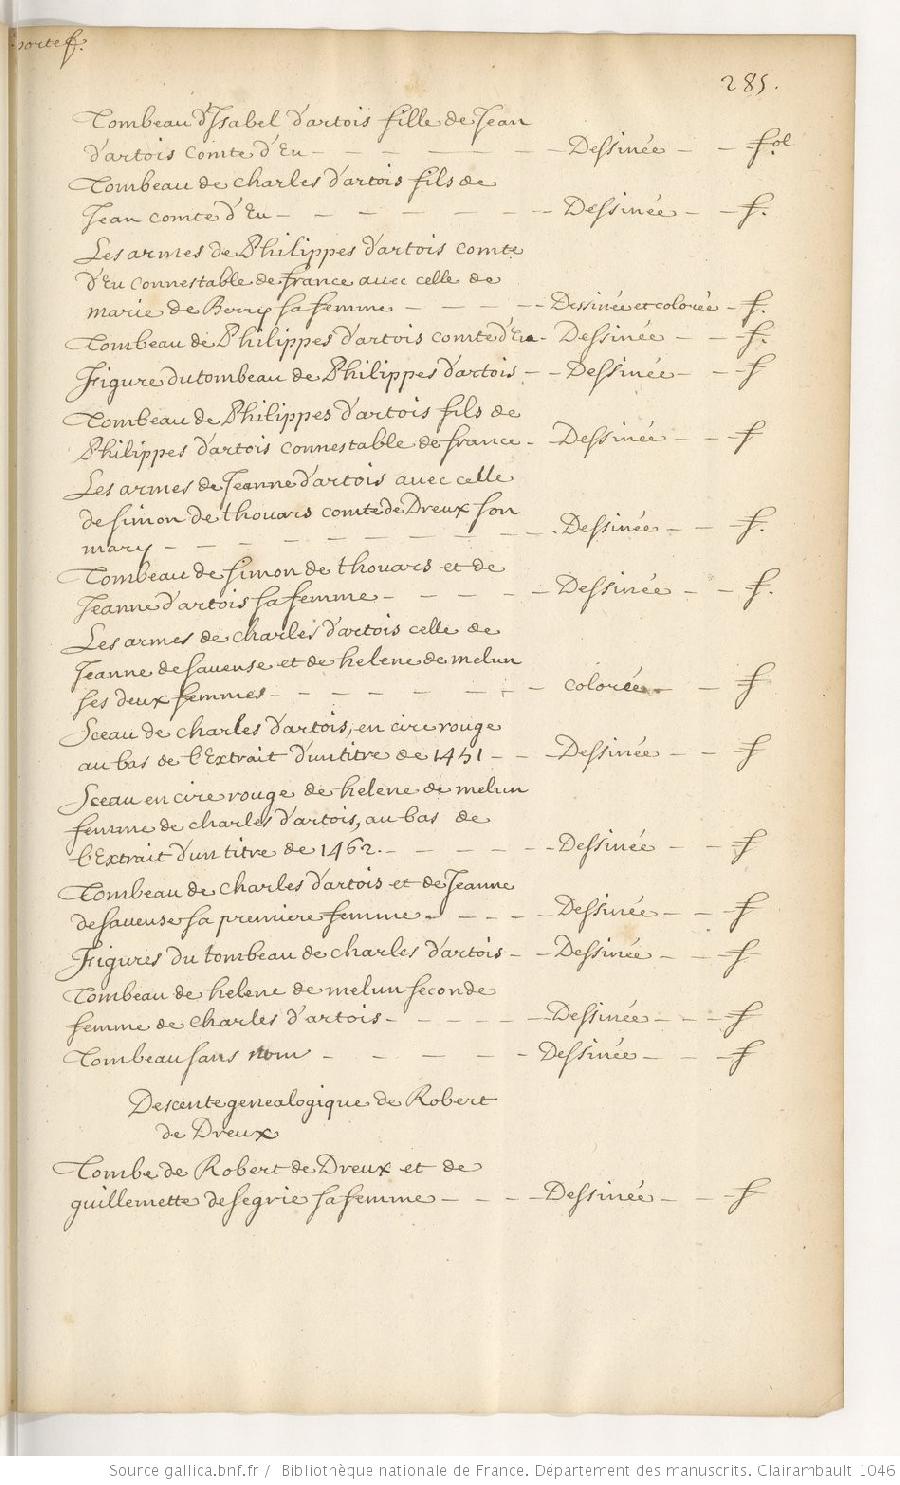 portef.
285.
Tombeau d'Isabel d'artois fille de Jean
d'artois Comte d'Eu - - - - - Dessinée - - fol.
Tombeau de charles d'artois fils de
Jean comte d'Eu - - - - - - Dessinée - - f.
Les armes de Philippes d'artois comte
d'Eu connestable de france avec celle de
marie de Berry sa femme - - - - Dessinée et colorée - f.
Tombeau de Philippes d'artois comte d'Eu - Dessinée - - f.
Figure du tombeau de Philippes d'artois - - Dessinée - - f
Tombeau de Philippes d'artois fils de
Philippes d'artois connestable de france - Dessinée - - f
Les armes de Jeanne d'artois avec celle
de simon de thouars comte de Dreux son
mary - - - - - - - - - Dessinée - - f.
Tombeau de simon de thouars et de
Jeanne d'artois sa femme - - - - Dessinée - - f.
Les armes de charles d'artois celle de
Jeanne de saveuse et de helene de melun
ses deux femmes - - - - - - colorée - - f
Sceau de charles d'artois, en cire rouge
au bas de l'Extrait d'un titre de 1451 - - Dessinée - - f
Sceau en cire rouge de helene de melun
femme de charles d'artois, au bas de
l'Extrait d'un titre de 1462. - - - - - Dessinée - - f
Tombeau de charles d'artois et de Jeanne
de saveuse sa premiere femme - - - - Dessinée - - f
Figures du tombeau de charles d'artois - - Dessinée - - f
Tombeau de helene de melun seconde
femme de charles d'artois - - - - - Dessinée - - - f
Tombeau sans nom - - - - - Dessinée - - f
Descente genealogique de Robert
de Dreux
Tombe de Robert de Dreux et de
guillemette de segrie sa femme - - - - Dessinée - - f
Source gallica.bnf.fr / Bibliothèque nationale de France. Département des manuscrits. Clairambault 1046